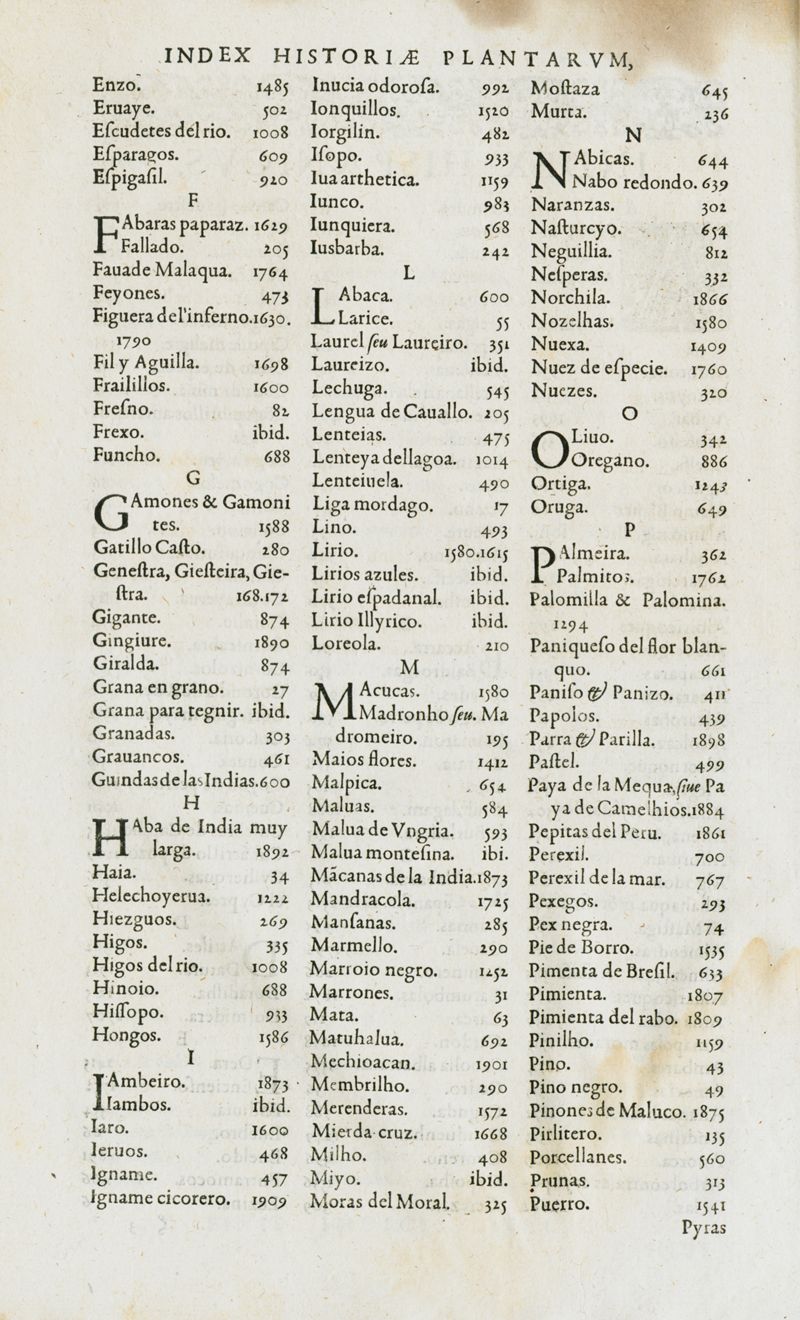 INDEX HISTORIÆ PLANTARVM,
Enzo. 1485
Eruaye. 502
Eſcudetes del rio. 1008
Eſparagos. 609
Eſpigaſil. 920
F
FAbaras paparaz. 1629
Fallado. 205
Fauade Malaqua. 1764
Feyones. 473
Figuera del'inferno.1630.
1790
Fil y Aguilla. 1698
Frailillos. 1600
Freſno. 82
Frexo. ibid.
Funcho. 688
G
GAmones & Gamoni
tes. 1588
Gatillo Caſto. 280
Geneſtra, Gieſteira, Gie-
ſtra. 168.172
Gigante. 874
Gingiure. 1890
Giralda. 874
Grana en grano. 27
Grana para tegnir. ibid.
Granadas. 303
Grauancos. 461
Guindas de las Indias.600
H
HAba de India muy
larga. 1892
Haia. 34
Helechoyerua. 1222
Hiezguos. 269
Higos. 335
Higos del rio. 1008
Hinoio. 688
Hiſſopo. 933
Hongos. 1586
I
IAmbeiro. 1873
Iambos. ibid.
Iaro. 1600
Ieruos. 468
Igname. 457
Igname cicorero. 1909
Inucia odoroſa. 992
Ionquillos. 1520
Iorgilin. 482
Iſopo. 933
Iua arthetica. 1159
Iunco. 983
Iunquiera. 568
Iusbarba. 242
L
LAbaca. 600
Larice. 55
Laurel ſeu Laureiro. 351
Laureizo. ibid.
Lechuga. 545
Lengua de Cauallo. 205
Lenteias. 475
Lenteya dellagoa. 1014
Lenteiuela. 490
Liga mordago. 17
Lino. 493
Lirio. 1580.1615
Lirios azules. ibid.
Lirio eſpadanal. ibid.
Lirio Illyrico. ibid.
Loreola. 210
M
MAcucas. 1580
Madronho ſeu. Ma
dromeiro. 195
Maios flores. 1412
Malpica. 654
Maluas. 584
Malua de Vngria. 593
Malua monteſina. ibi.
Mãcanas de la India.1873
Mandracola. 1725
Manſanas. 285
Marmello. 290
Marroio negro. 1252
Marrones. 31
Mata. 63
Matuhalua. 692
Mechioacan. 1901
Membrilho. 290
Merenderas. 1572
Mierda-cruz. 1668
Milho. 408
Miyo. ibid.
Moras del Moral. 325
Moſtaza 645
Murta. 236
N
NAbicas. 644
Nabo redondo. 639
Naranzas. 302
Naſturcyo. 654
Neguillia. 812
Neſperas. 332
Norchila. 1866
Nozelhas. 1580
Nuexa. 1409
Nuez de eſpecie. 1760
Nuezes. 320
O
OLiuo. 342
Oregano. 886
Ortiga. 1243
Oruga. 649
P
PAlmeira. 362
Palmitos. 1762
Palomilla & Palomina.
1294
Paniqueſo del flor blan-
quo. 661
Paniſo & Panizo. 411
Papolos. 439
Parra & Parilla. 1898
Paſtel. 499
Paya de la Mequa, ſiue Pa
ya de Camelhios.1884
Pepitas del Peru. 1861
Perexil. 700
Perexil de la mar. 767
Pexegos. 293
Pex negra. 74
Pie de Borro. 1535
Pimenta de Breſil. 633
Pimienta. 1807
Pimienta del rabo. 1809
Pinilho. 1159
Pino. 43
Pino negro. 49
Pinones de Maluco. 1875
Pirlitero. 135
Porcellanes. 560
Prunas. 313
Puerro. 1541
Pyras